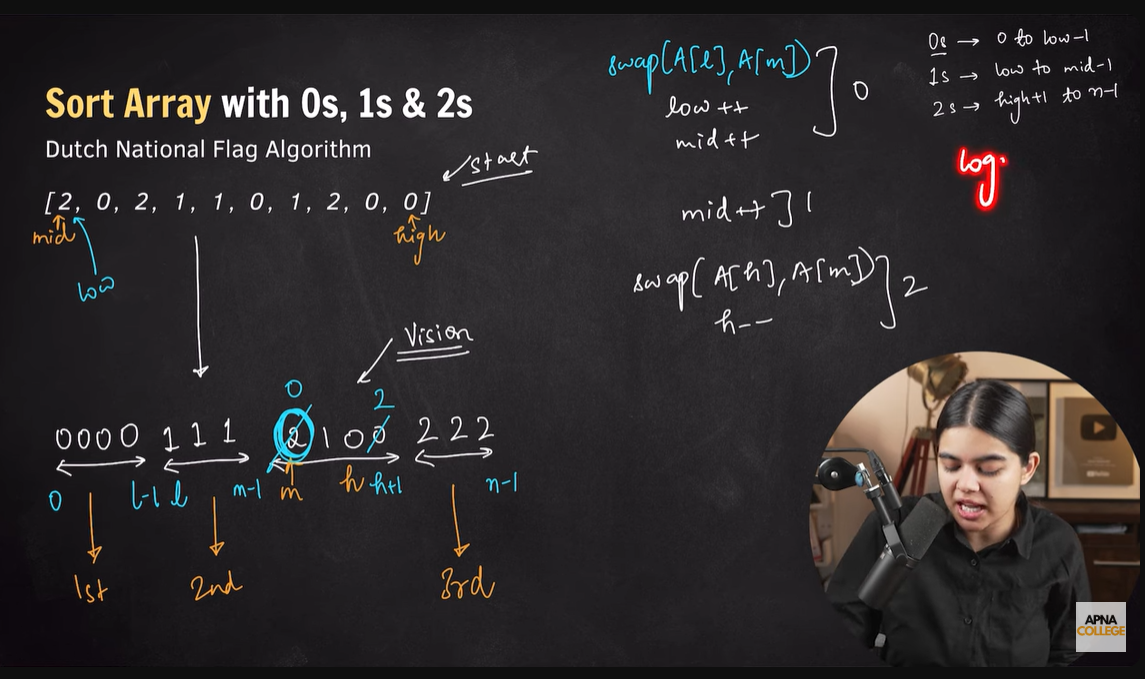 Sort Array with 0s, 1s & 2s
Dutch National Flag Algorithm
start
[2, 0, 2, 1, 1, 0, 1, 2, 0, 0]
mid
high
low
Vision
0
2
0000 111 2100 222
0 l-1 l m-1 m h h+1 n-1
1st 2nd 3rd
swap(A[l], A[m])
low ++
mid ++
0
mid ++ ] 1
swap(A[h], A[m])
h--
2
0s → 0 to low-1
1s → low to mid-1
2s → high+1 to n-1
log.
APNA
COLLEGE